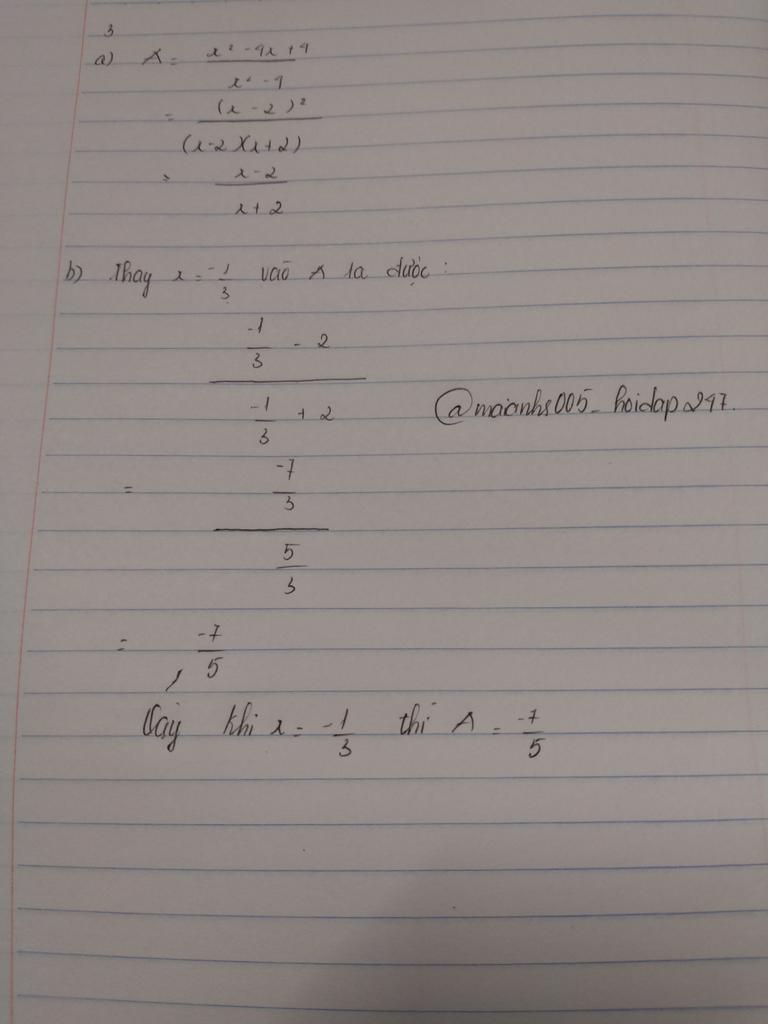 3
a) A = x² - 4x + 4 / x² - 4
= (x - 2)² / (x-2)(x+2)
= x - 2 / x + 2
b) Thay x = -1/3 vào A ta được :
-1/3 - 2 / -1/3 + 2
@maianhs005_hoidap247.
= -7/3 / 5/3
= -7/5
Vậy khi x = -1/3 thì A = -7/5